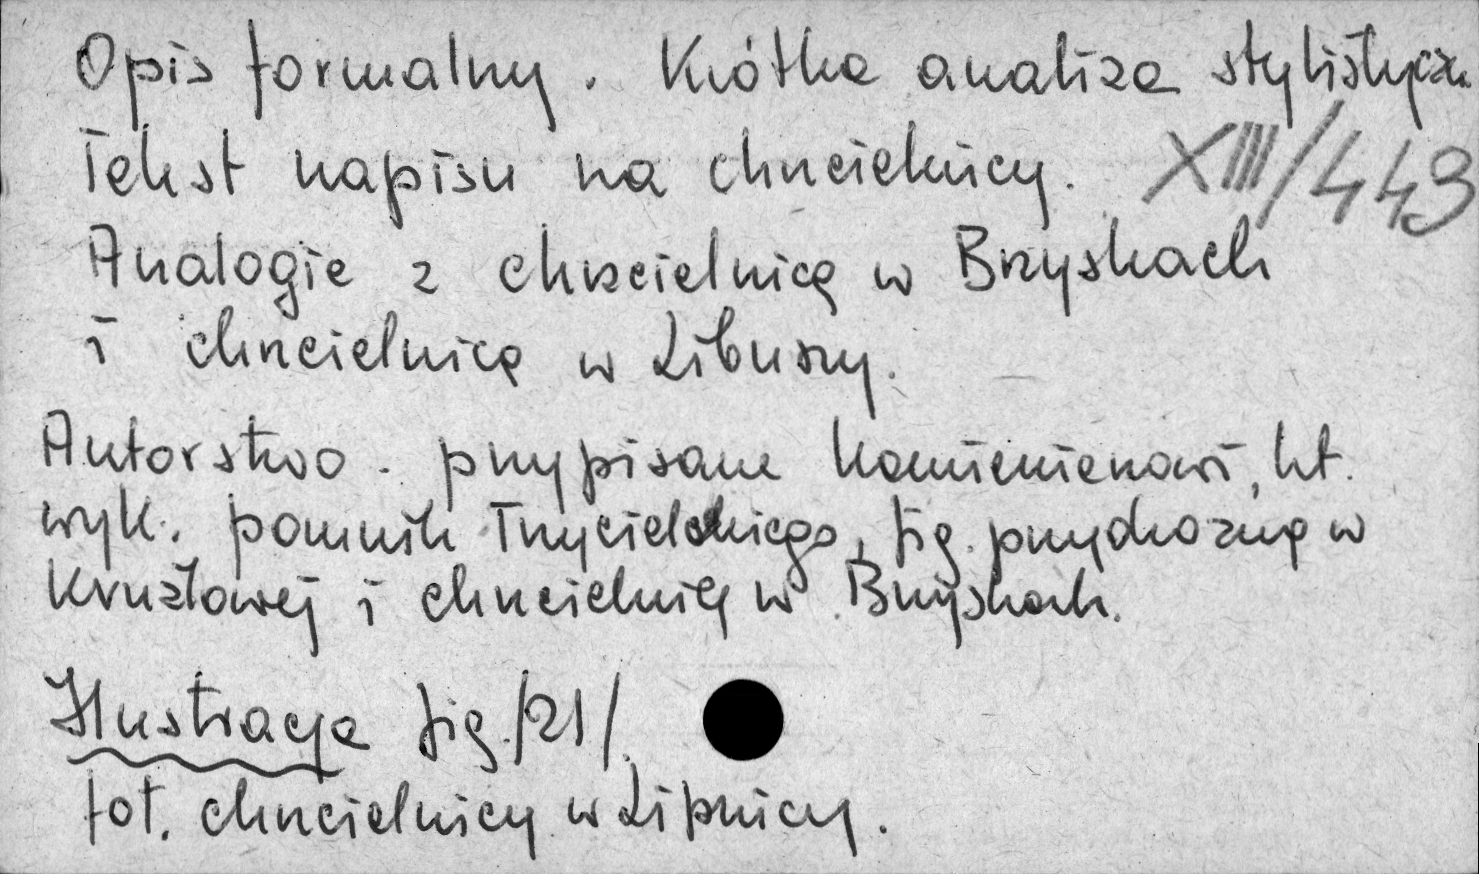 Opis formalny. Krótka analiza stylistyczn.
Tekst napisu na chrzcielnicy. XIII/449
Analogie z chrzcielnicą w Brzyskach
i chrzcielnicą w Libuszy.
Autorstwo przypisane kamieniarzowi, kt.
wyk. pomnik Trzycielskiego, fig. przydrożną w
Krużlowej i chrzcielnicę w Brzyskach.
Ilustracja fig. /21/.
fot. chrzcielnicy w Lipnicy.